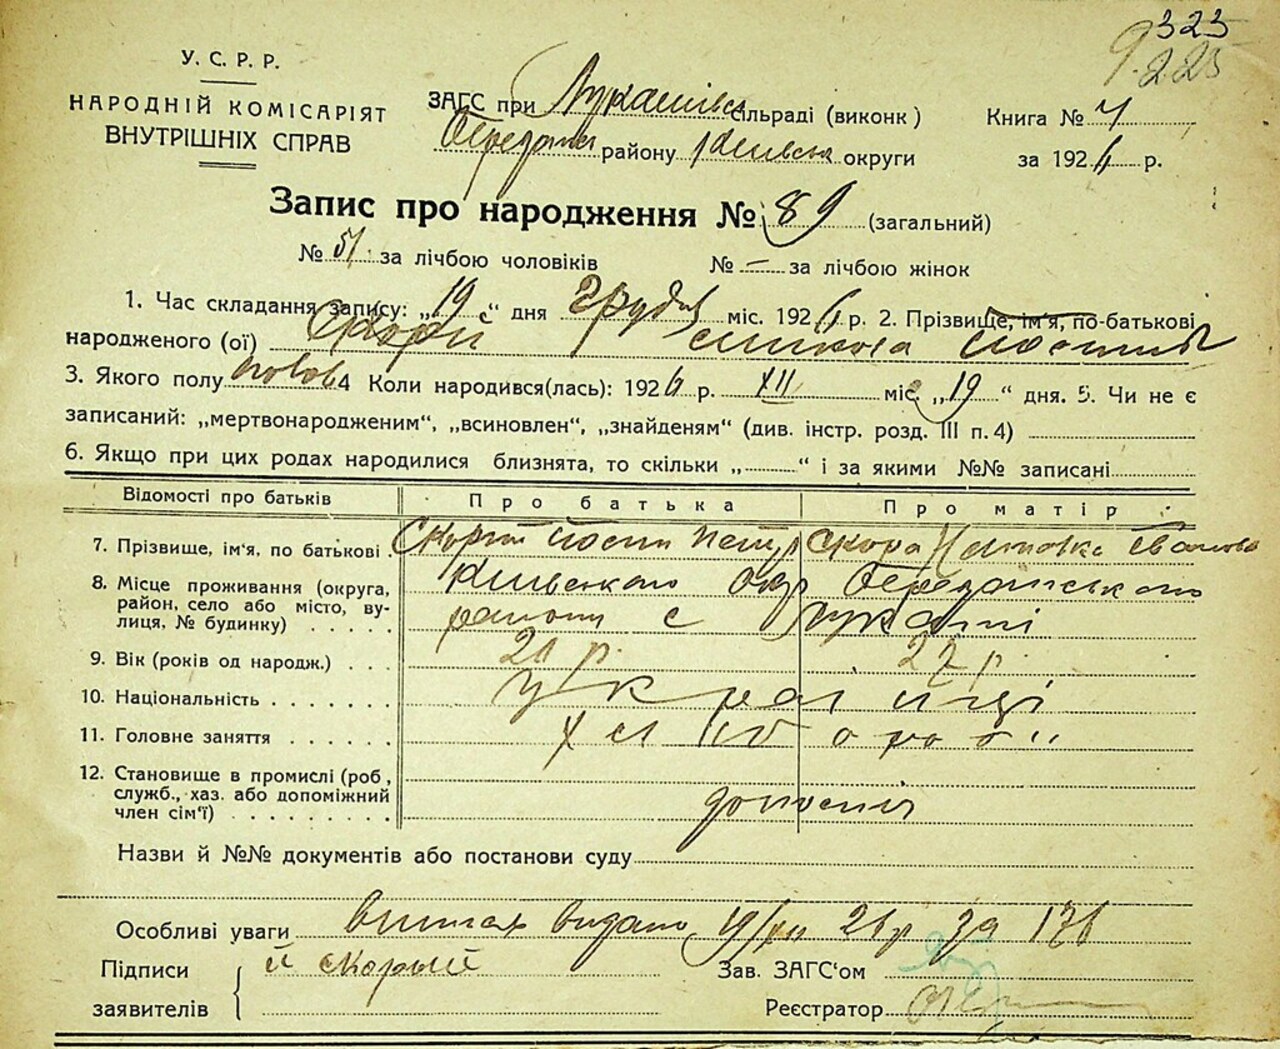 323
9.225
У. С. Р. Р.
НАРОДНІЙ КОМІСАРІЯТ
ВНУТРІШНІХ СПРАВ
ЗАГС при Лукашівс сільраді (виконк )
району Київськ округи
Книга №
за 1926 р.
Запис про народження № 89 (загальний)
№ 51 за лічбою чоловіків № — за лічбою жінок
1. Час складання запису: „19“ дня Грудня міс. 1926 р. 2. Прізвище, ім'я, по-батькові
народженого (ої) Скорий Микола
3. Якого полу чолов 4 Коли народився(лась): 1926 р. XII міс. „19“ дня. 5. Чи не є
записаний: „мертвонародженим“, „всиновлен“, „знайденям“ (див. інстр. розд. III п. 4)
6. Якщо при цих родах народилися близнята, то скільки „ “ і за якими №№ записані
Відомості про батьків Про батька Про матір
7. Прізвище, ім'я, по батькові Скорий Петр Скора Іванова
8. Місце проживання (округа, Київського окр
район, село або місто, ву- району с Лукаші
лиця, № будинку)
9. Вік (років од народж.) р. 27 р.
10. Національність українці
11. Головне заняття хлібороби
12. Становище в промислі (роб,
служб., хаз. або допоміжний
член сім'ї)
Назви й №№ документів або постанови суду
Особливі уваги видано 19/XII 26 р за 176
Підписи Й Скорый Зав. ЗАГС'ом
заявителів Реєстратор